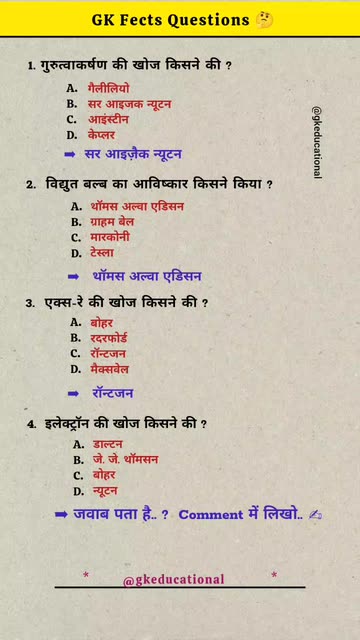 GK Fects Questions 🤔
@gkeducational
1. गुरुत्वाकर्षण की खोज किसने की ?
A. गैलीलियो
B. सर आइजक न्यूटन
C. आइंस्टीन
D. केप्लर
➡ सर आइज़ैक न्यूटन
2. विद्युत बल्ब का आविष्कार किसने किया ?
A. थॉमस अल्वा एडिसन
B. ग्राहम बेल
C. मारकोनी
D. टेस्ला
➡ थॉमस अल्वा एडिसन
3. एक्स-रे की खोज किसने की ?
A. बोहर
B. रदरफोर्ड
C. रॉन्टजन
D. मैक्सवेल
➡ रॉन्टजन
4. इलेक्ट्रॉन की खोज किसने की ?
A. डाल्टन
B. जे. जे. थॉमसन
C. बोहर
D. न्यूटन
➡ जवाब पता है.. ? Comment में लिखो.. ✍
* @gkeducational *